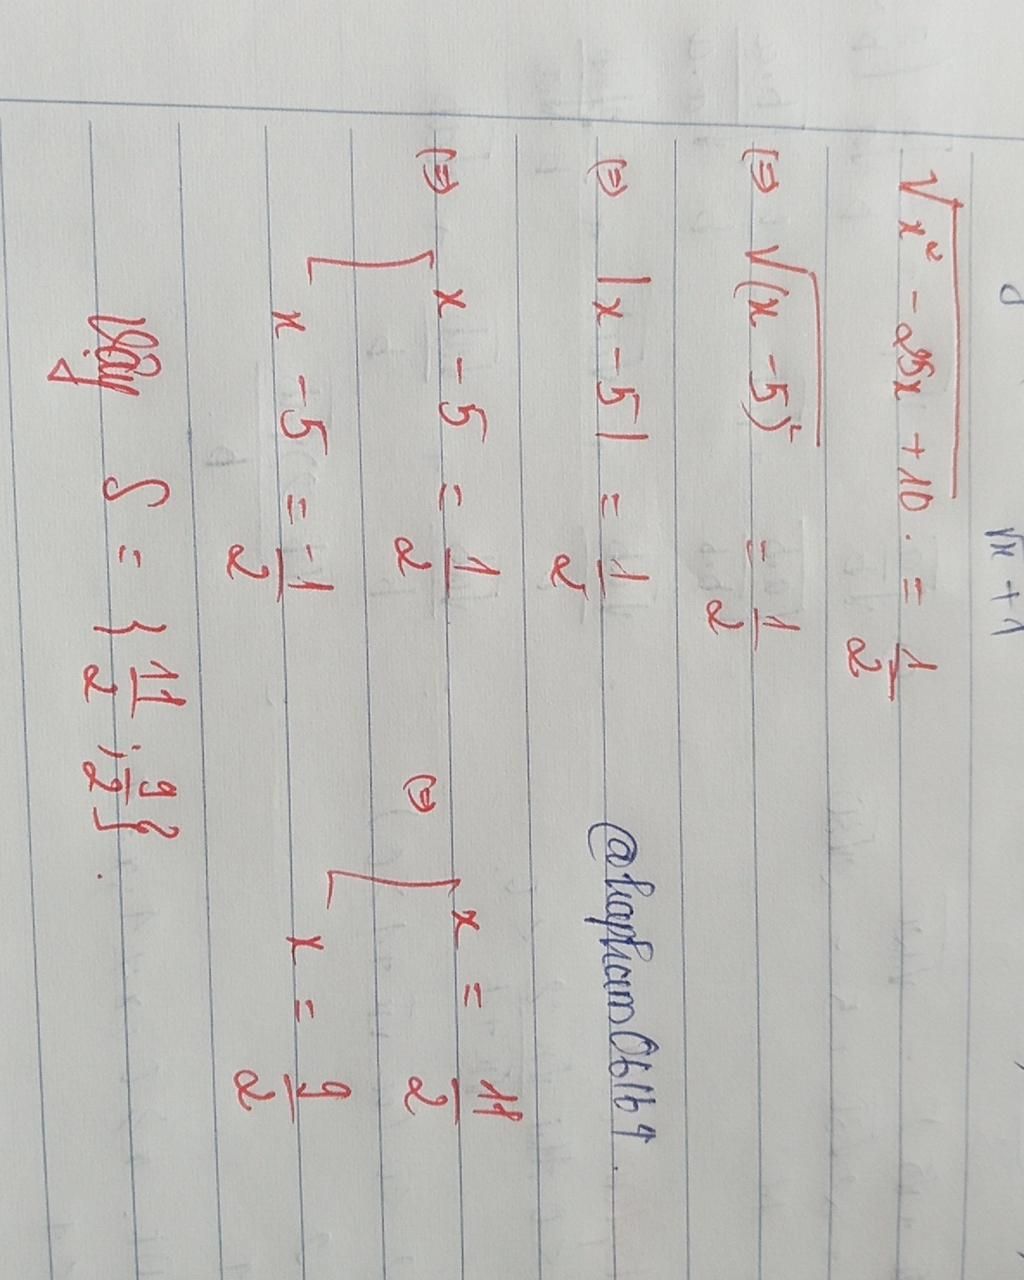 √x + 1
√x² - 25x + 10 . = 1/2
(=) √(x - 5)² = 1/2
(=) |x - 5| = 1/2
@hapham06169 .
(=) [ x - 5 = 1/2 (=) [ x = 11/2
x - 5 = -1/2 x = 9/2
Vậy S = { 11/2 ; 9/2 } .